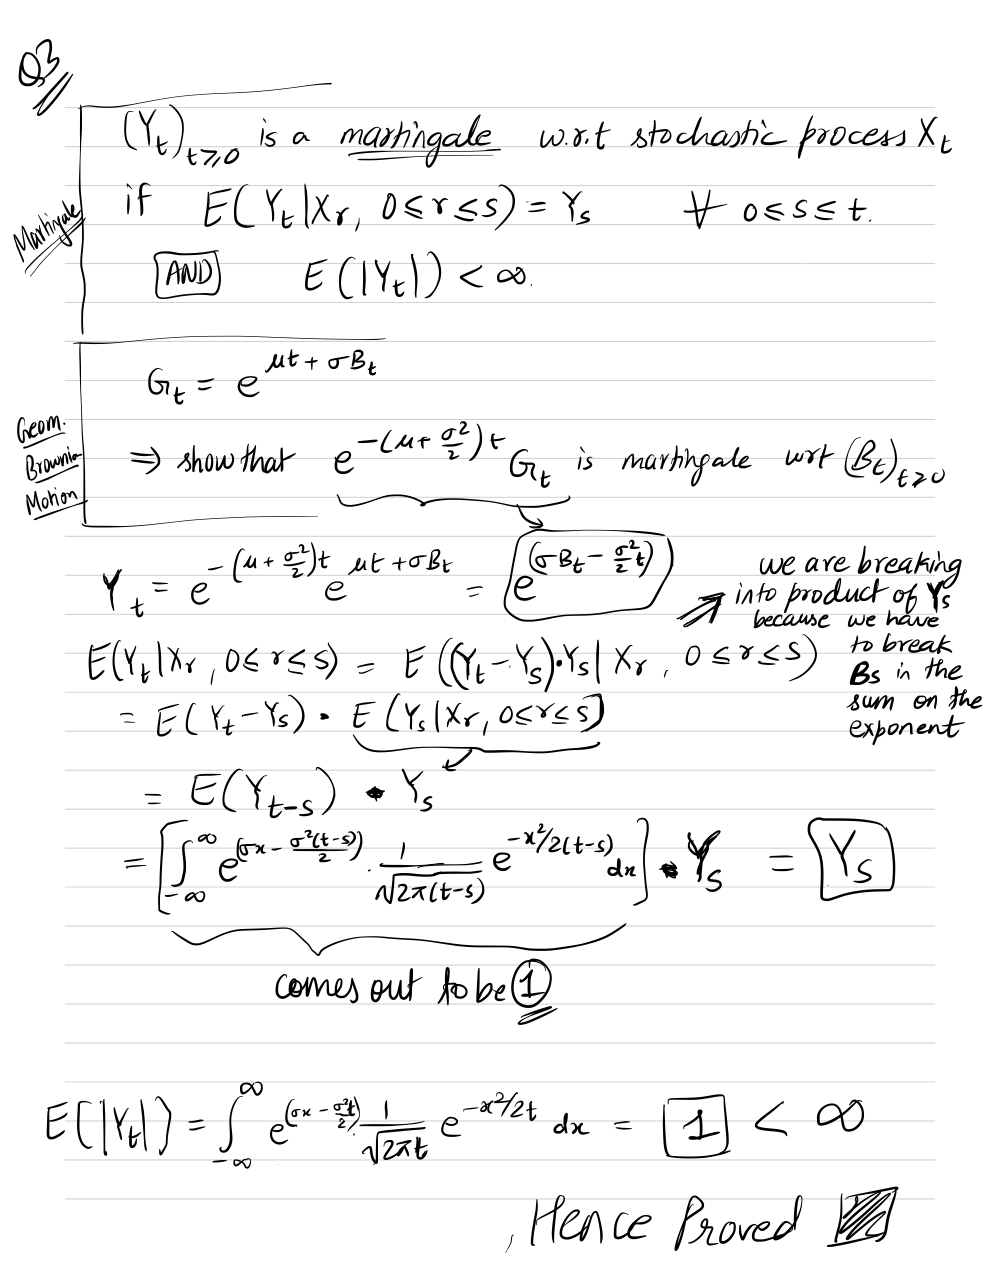 Q3
(Y_t)_{t≥0} is a martingale w.r.t stochastic process X_t
Martingale
if E(Y_t|X_r, 0≤r≤s) = Y_s ∀ 0≤s≤t.
AND E(|Y_t|) < ∞.
G_t = e^{μt + σB_t}
Geom. Brownian Motion
⇒ show that e^{-(μ+σ²/2)t} G_t is martingale wrt (B_t)_{t≥0}
Y_t = e^{-(μ+σ²/2)t} e^{μt+σB_t} = e^{(σB_t - σ²/2 t)}
we are breaking
into product of Y_s
because we have
to break
B_s in the
sum on the
exponent
E(Y_t|X_r, 0≤r≤s) = E((Y_t-Y_s)·Y_s|X_r, 0≤r≤s)
= E(Y_t-Y_s) · E(Y_s|X_r, 0≤r≤s)
= E(Y_{t-s}) · Y_s
= [∫_{-∞}^{∞} e^{(σx - σ²(t-s)/2)} · 1/√2π(t-s) e^{-x²/2(t-s)} dx] · Y_s = Y_s
comes out to be 1
E(|Y_t|) = ∫_{-∞}^{∞} e^{(σx - σ²t/2)} 1/√2πt e^{-x²/2t} dx = 1 < ∞
, Hence Proved